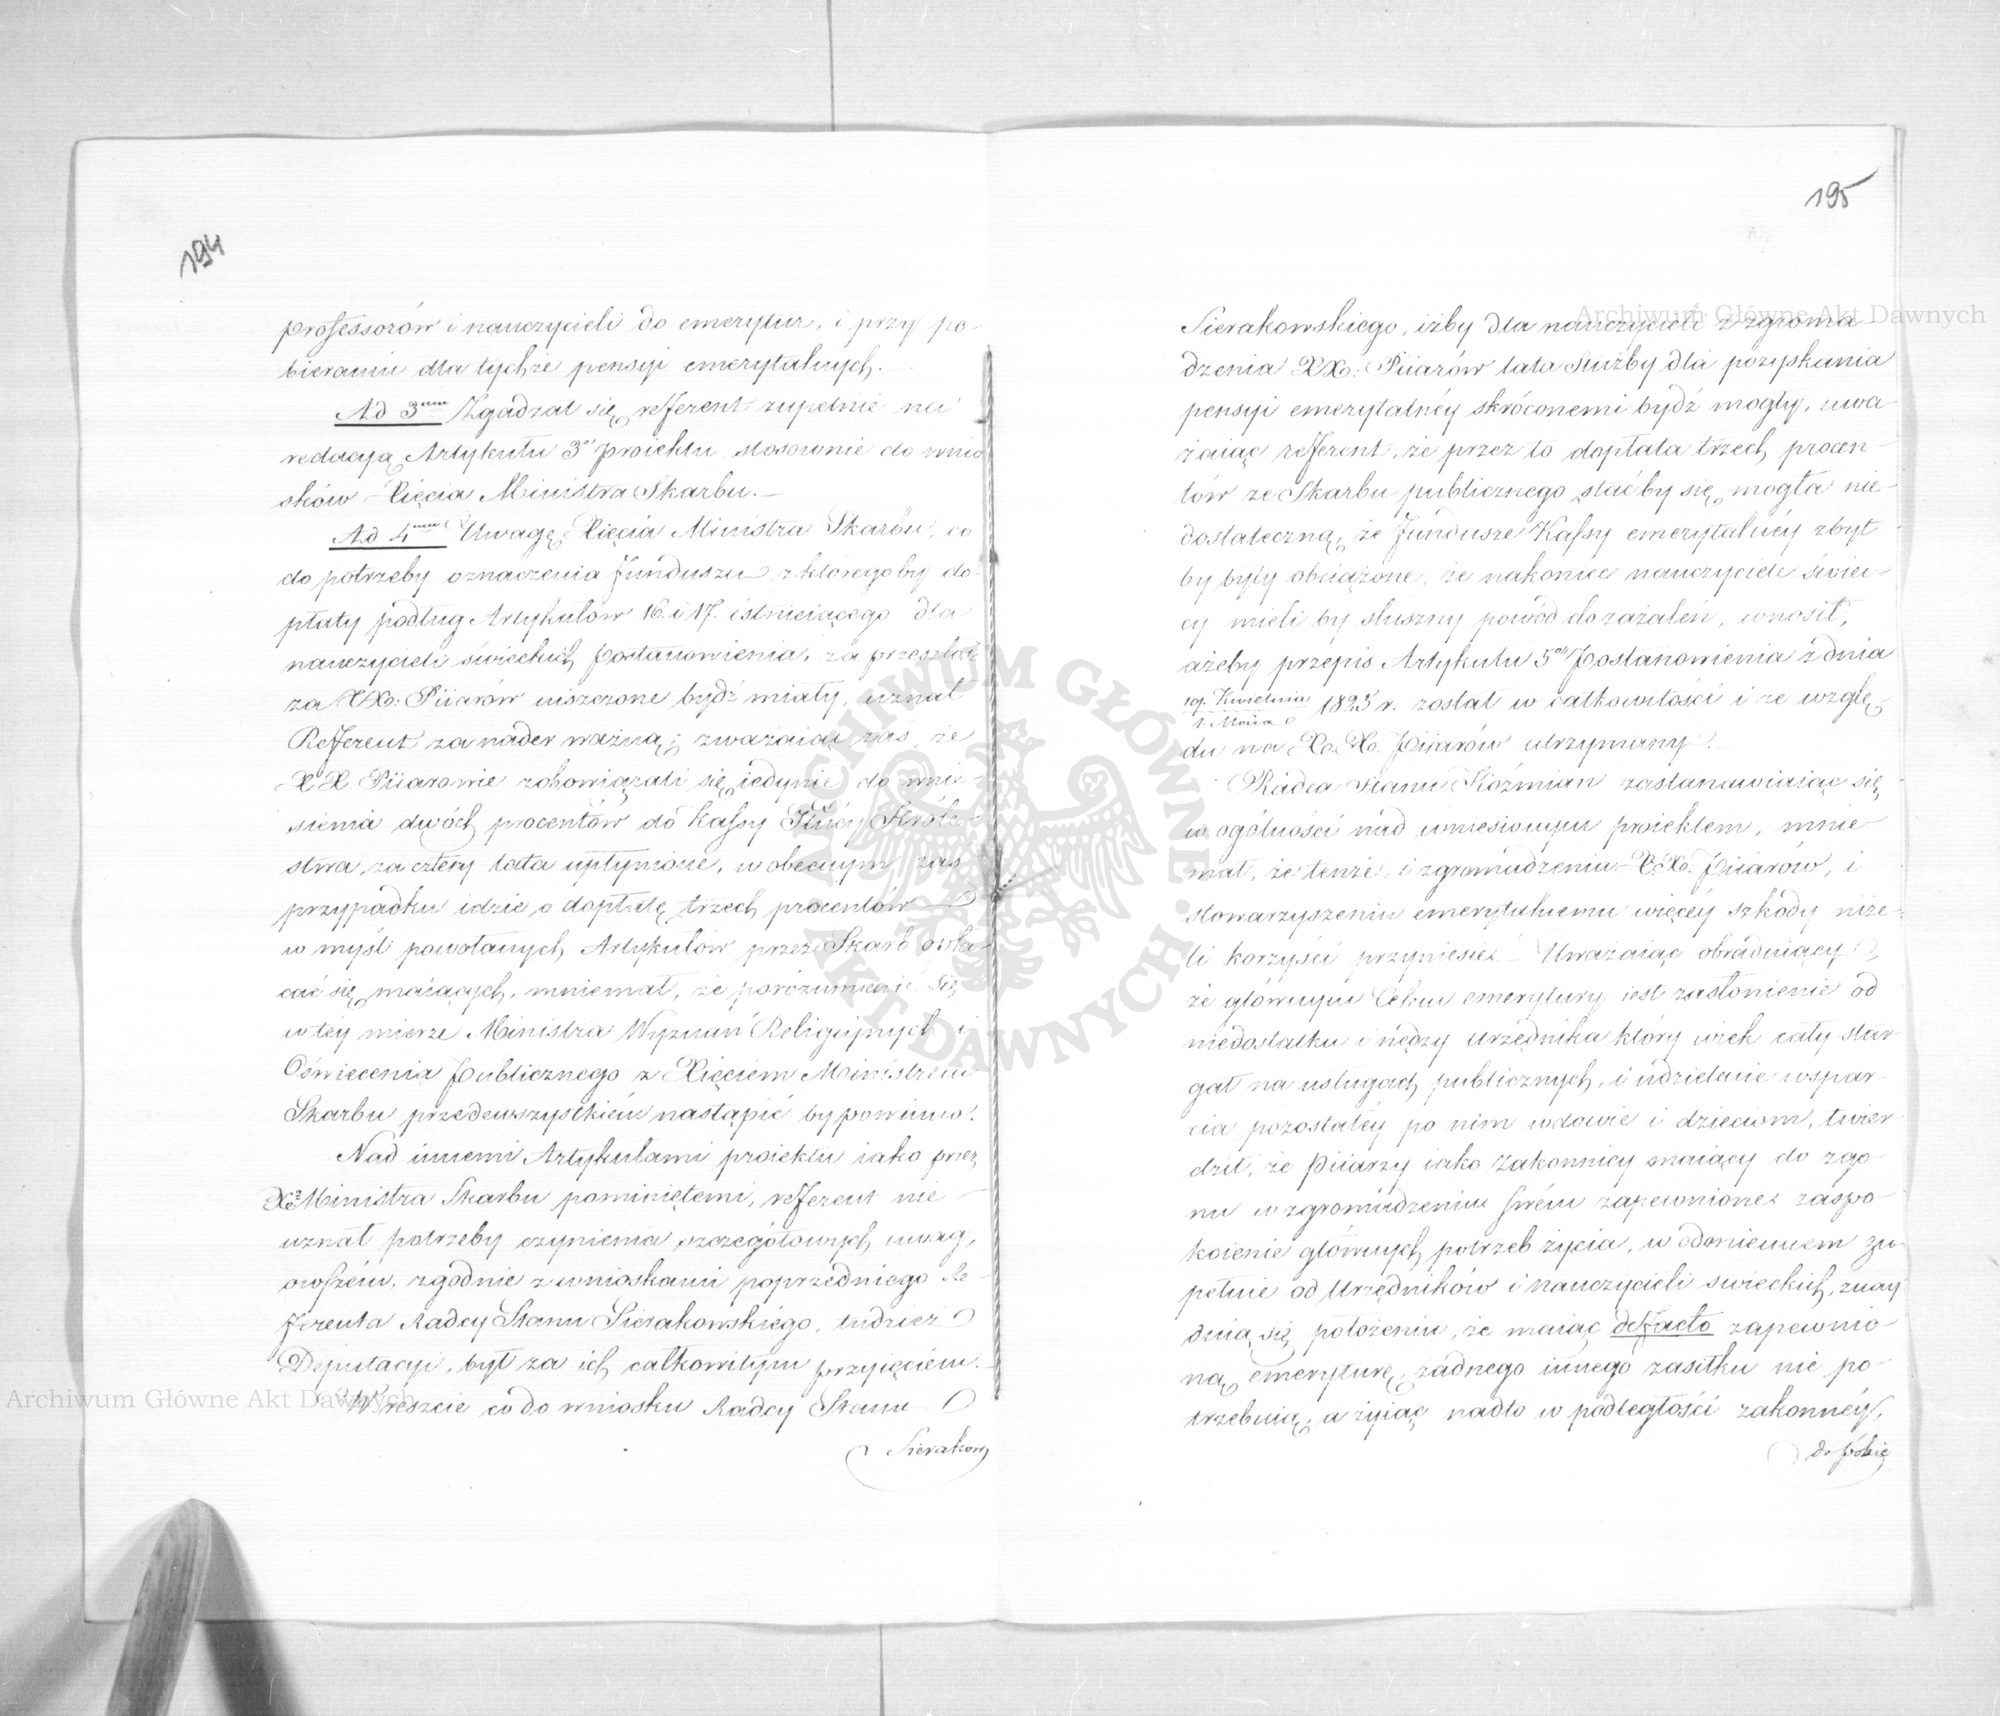 194
professorów i nauczycieli do emerytur, i przy po-
bieraniu dla tychże pensyi emerytalnych.
Ad 3num Zgadzał się referent zupełnie na
redacyą Artykułu 3o proiektu stosownie do wnio
sków Xięcia Ministra Skarbu.
Ad 4num Uwagę Xięcia Ministra Skarbu, co
do potrzeby oznaczenia funduszu z którego by do-
płaty podług Artykułów 16. i 17. istnieiącego dla
nauczycieli świeckich Postanowienia, za przeszłość
za XX. Piiarów uiszczone bydź miały, uznał
Referent za nader ważną; zważaiąc zaś, że
XX Piiarowie zobowiązali się iedynie do wnie-
sienia dwóch procentów do Kassy Głney Króle-
stwa, za cztery lata upłynione, w obecnym zaś
przypadku idzie o dopłatę trzech procentów
w myśl powołanych Artykułów przez Skarb opła-
cać się maiących, mniemał, że porozumienie się
w tey mierze Ministra Wyznań Religijnych i
Oświecenia Publicznego z Xięciem Ministrem
Skarbu przedewszystkiem nastąpić by powinno.
Nad innemi Artykułami proiektu iako przez
Xcia Ministra Skarbu pominiętemi, referent nie
uznał potrzeby czynienia szczegółowych uwag,
owszem, zgodnie z wnioskami poprzedniego Re-
ferenta Radcy Stanu Sierakowskiego, tudzież
Deputacyi, był za ich całkowitym przyięciem.
Wreszcie co do wniosku Radcy Stanu
Sierakow
195
Sierakowskiego, iżby dla nauczycieli z zgroma
dzenia XX. Piiarów lata służby dla pozyskania
pensyi emerytalney skróconemi bydź mogły, uwa-
żaiąc referent, że przez to dopłata trzech procen-
tów ze Skarbu publicznego stać by się mogła nie-
dostateczną, że fundusze Kassy emerytalney zbyt
by były obciążone, że nakoniec nauczyciele świec-
cy mieli by słuszny powód do zażaleń, wnosił,
ażeby przepis Artykułu 5o Postanowienia z dnia
19. Kwietnia
1. Maia
1825 r. został w całkowitości i ze wzglę-
du na X.X. Piiarów utrzymany.
Radca Stanu Koźmian zastanawiaiąc się
w ogólności nad wniesionym proiektem, mnie
mał, że tenże i zgromadzeniu XX. Piiarów, i
stowarzyszeniu emerytalnemu więcey szkody niże-
li korzyści przyniesie. Uważaiąc obraduiący,
że głównym Celem emerytury iest zasłonienie od
niedostatku i nędzy urzędnika który wiek cały star
gał na usługach publicznych, i udzielenie wspar-
cia pozostałey po nim wdowie i dzieciom, twier
dził, że Piiarzy iako zakonnicy maiący do zgo-
nu w zgromadzeniu swem zapewnione zaspo
koienie głównych potrzeb życia, w odmiennem zu-
pełnie od Urzędników i nauczycieli świeckich, znay
duią się położeniu, że maiąc de facto zapewnio-
ną emeryturę, żadnego innego zasiłku nie po-
trzebuią, a żyiąc nadto w podległości zakonney,
Archiwum Główne Akt Dawnych
Archiwum Główne Akt Dawnych
ARCHIWUM GŁÓWNE AKT DAWNYCH